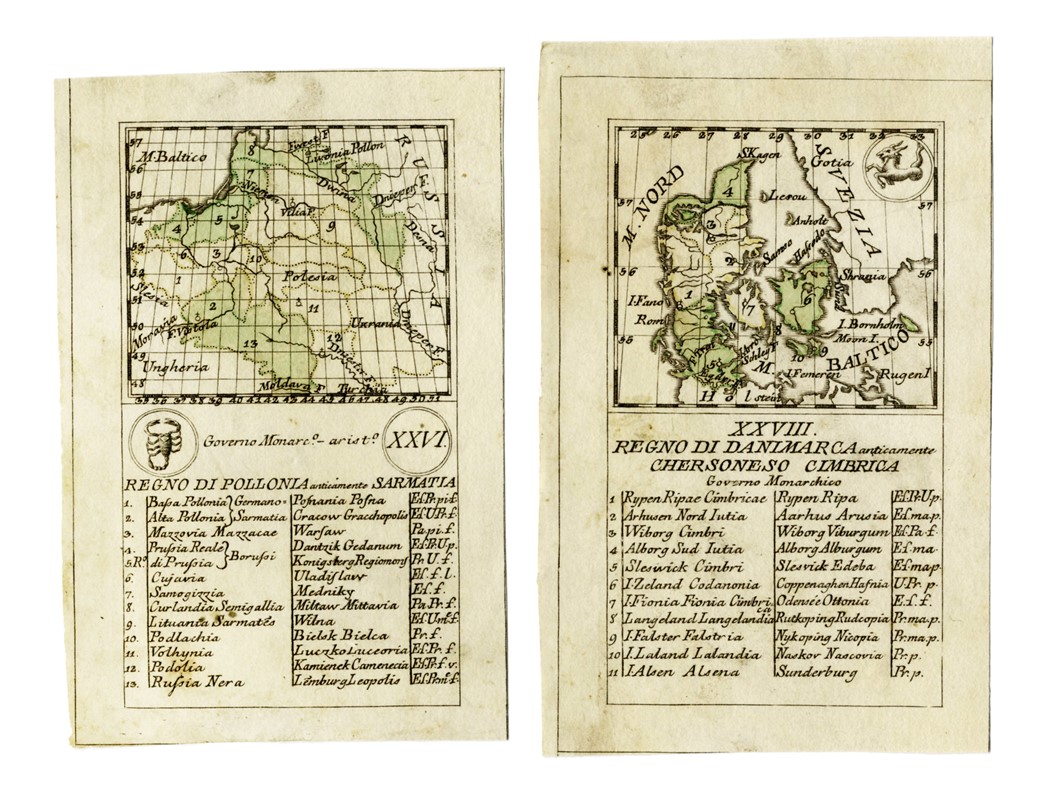 57
M. Baltico
56
55
54
53
52
51
50
49
48
8
Livonia Pollon
7
Niemen
Dwina
Dnieper
RUSSIA
Vilia F.
9
4
5
Desna
6
3
10
1
Polesia
Slesia
2
11
Moravia
F. Vistola
Ukrania
Dnieper F.
13
12
Dniester F.
Ungheria
Moldava F
Turchia
35 36 37 38 39 40 41 42 43 44 45 46 47 48 49 50 51
Governo Monarc.º - arist.º
XXVI.
REGNO DI POLLONIA anticamente SARMATIA
1. Bassa Pollonia } Germano- Posnania Posna Es.Pr.pi.f.
2. Alta Pollonia } Sarmatia Cracow Gracchopolis Es.U.Pr.f.
3. Mazzovia Mazzacae Warsaw Pa.pi.f.
4. Prussia Reale } Borussi Dantzik Gedanum Es.Pr.U.p.
5. R.º di Prussia } Konigsberg Regiomons Pr.U.f.
6. Cujavia Uladislaw Es.f.l.
7. Samogizzia Medniky Es.f.
8. Curlandia Semigallia Mittaw Mittavia Pa.Pr.f.
9. Lituania Sarmates Wilna
10. Podlachia Bielsk Bielca Pr.f.
11. Volhynia Luczko Luceoria Es.Pr.f.
12. Podolia Kamienek Camenecia Es.Pr.f.v.
13. Russia Nera Lemburg Leopolis
25 26 27 28 29 30 31 32 33
M. NORD
SKagen
Gotia
SVEZIA
4
Lesou
57
57
3
Anholt
2
Samso
Hasredo
56
1
Skrania
I. Fano
7
6
Sund
Rom
I. Bornholm
Moon I.
55
55
11
8
9
10
BALTICO
5
M.
I. Femeren
Rugen I
Holstein
XXVIII.
REGNO DI DANIMARCA anticamente
CHERSONESO CIMBRICA
Governo Monarchico
1 Rypen Ripae Cimbricae Rypen Ripa Es.Pr.U.p.
2 Arhusen Nord Iutia Aarhus Arusia Es.ma.p.
3 Wiborg Cimbri Wiborg Viburgum Es.Pa.f.
4 Alborg Sud Iutia Alborg Alburgum Es.ma.
5 Sleswick Cimbri Slesvick Edeba Es.ma.p.
6 I. Zeland Codanonia Coppenaghen Hafnia U.Pr.p.
7 I. Fionia Fionia Cimbrica Odensée Ottonia E.s.f.
8 Langeland Langelandia Rutkoping Rudcopia Pr.ma.p.
9 I. Falster Falstria Nykoping Nicopia Pr.ma.p.
10 I. Laland Lalandia Naskov Nascovia Pr.p.
11 I. Alsen Alsena Sunderburg Pr.p.